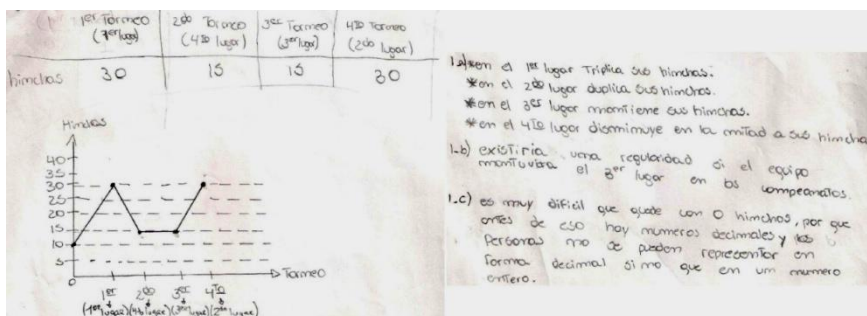 1er Torneo 2do Torneo 3er Torneo 4to Torneo
(1er lugar) (4to lugar) (3er lugar) (2do lugar)
hinchas 30 15 15 30
Hinchas
40
35
30
25
20
15
10
5
0
Torneo
1er 2do 3er 4to
(1er lugar) (4to lugar) (3er lugar) (2do lugar)
1.a) *en el 1er lugar Triplica sus hinchas.
*en el 2do lugar duplica sus hinchas.
*en el 3er lugar mantiene sus hinchas.
*en el 4to lugar disminuye en la mitad a sus hincha
1-b) existiria una regularidad si el equipo
mantuviera el 3er lugar en los campeonatos.
1-c) es muy dificil que quede con 0 hinchas, por que
antes de eso hay numeros decimales y las
Personas no se pueden representar en
forma decimal si no que en un numero
entero.